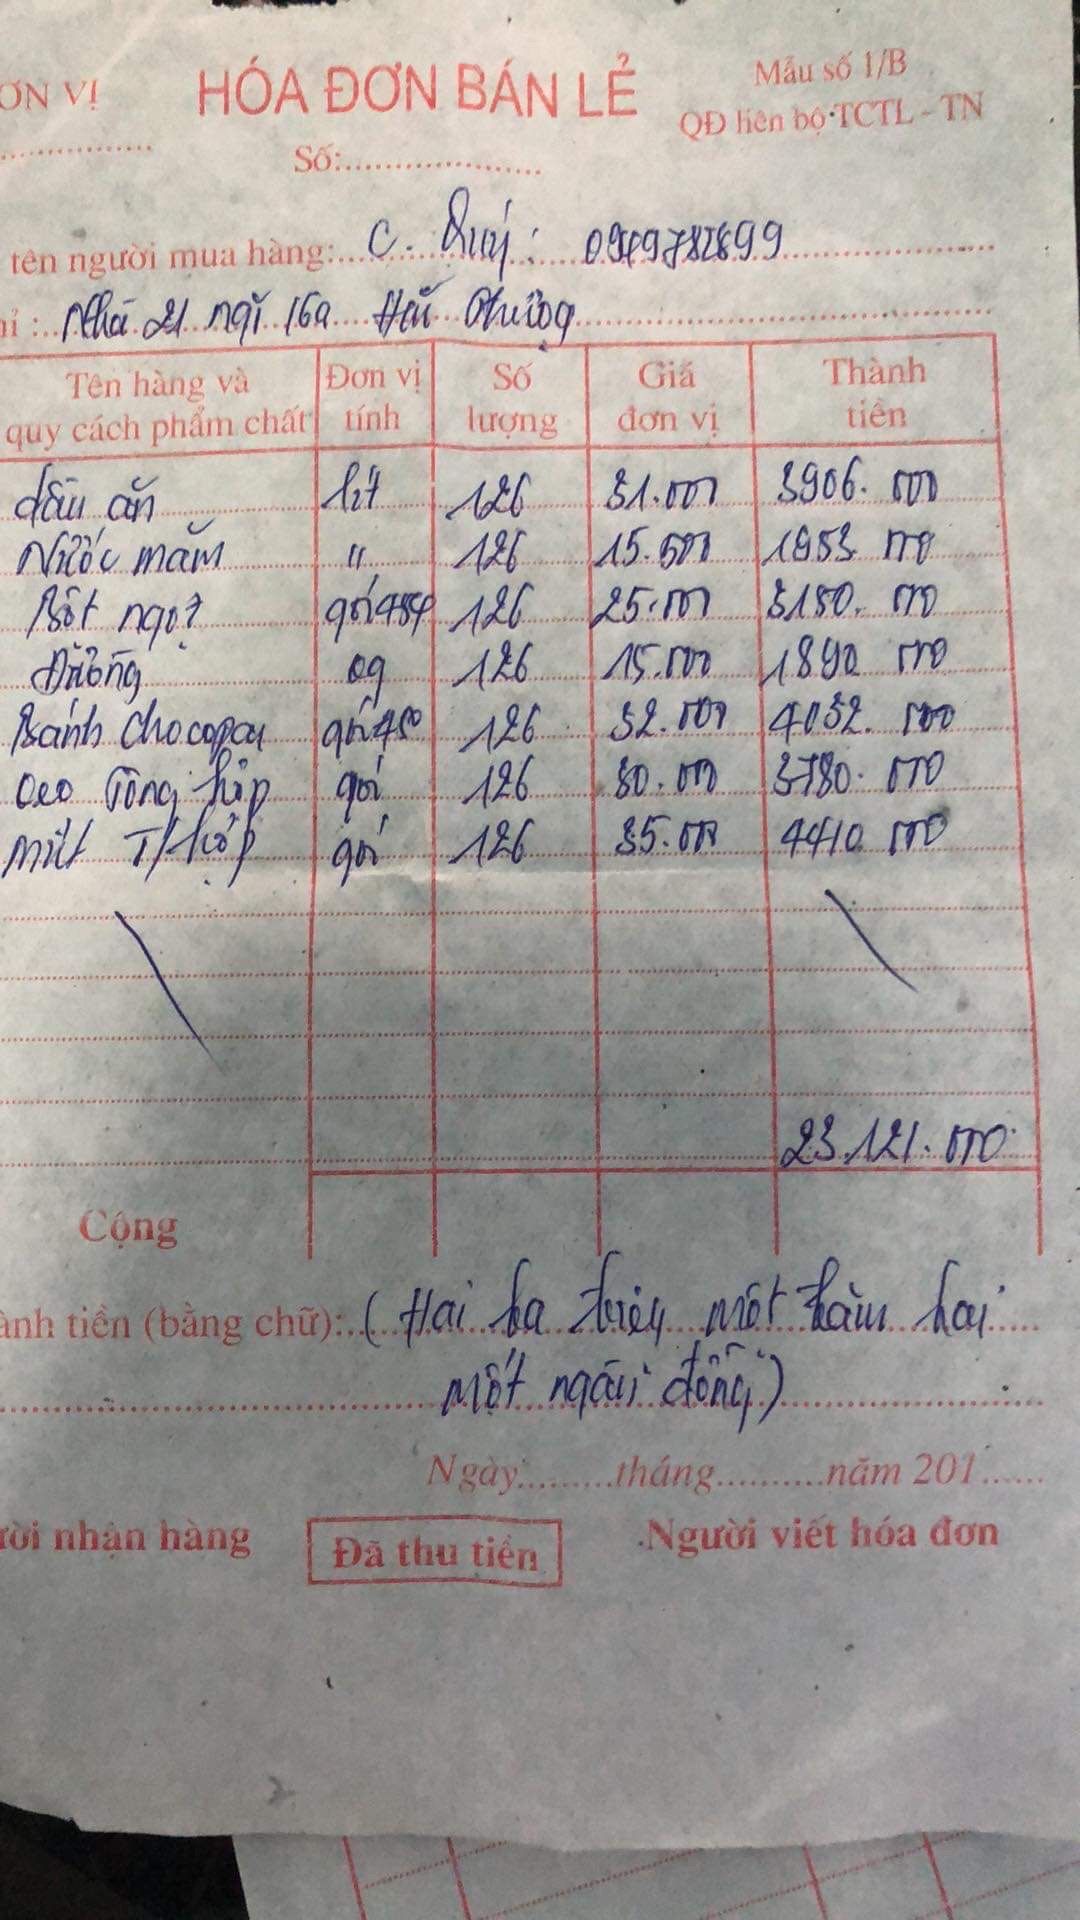 ƠN VỊ
HÓA ĐƠN BÁN LẺ
Mẫu số 1/B
QĐ liên bộ TCTL - TN
Số:
tên người mua hàng: C. Quý:
Nhà 21 ngõ 169
Tên hàng và quy cách phẩm chất Đơn vị tính Số lượng Giá đơn vị Thành tiền
dầu ăn lít 126 31.000 3906.000
Nước mắm " 126 15.500 1953 000
Bột ngọt gói 454 126 25.000 3150.000
Đường 126 15.000 1890 000
Bánh Chocopai gói 126 32.000 4032.000
tổng hợp gói 126 30.000 3780.000
Mứt T/hợp gói 126 35.000 4410 000
23.121.000
Cộng
ành tiền (bằng chữ): (Hai ba triệu một trăm hai
một ngàn đồng)
Ngày tháng năm 201
ười nhận hàng Đã thu tiền Người viết hóa đơn